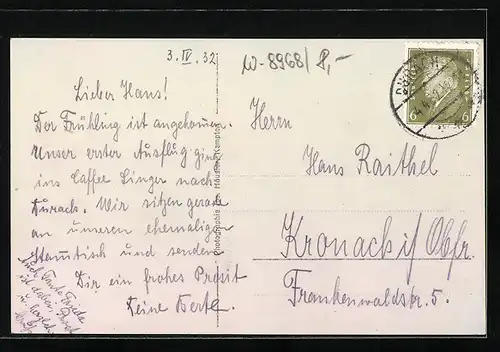 3. IV. 32
W-8968/8,-
Lieber Hans!
Der Frühling ist angekommen.
Unser erster Ausflug ging
ins Caffee Singer nach
Durach. Wir sitzen gerade
an unseren ehemaligen
Stamtisch und senden
Dir ein frohes Prosit
Deine Berte
Auch Tante
ist dabei
Herrn
Hans Raithel
Kronach i/ Obfr.
Frankenwaldstr. 5.
Photographie Häusler Kempten
6 6